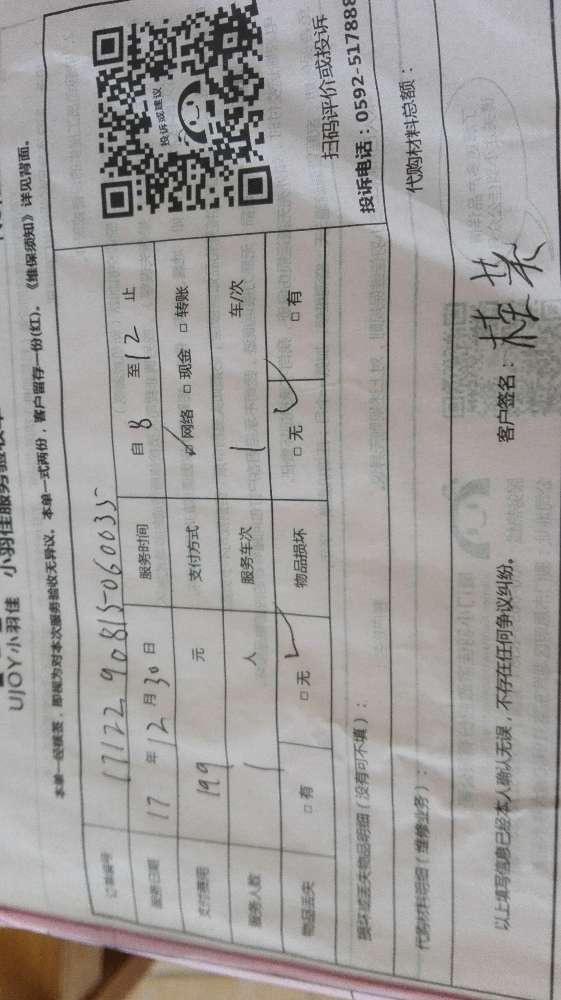 UJOY小羽佳 小羽佳服务验收单
本单一经核签，即视为对本次服务验收无异议，本单一式两份，客户留存一份(红)。《维保须知》详见背面。
订单编号 17122 90815-060035
服务日期 17 年 12 月 30 日 服务时间 自 8 至 12 止
支付费用 199 元 支付方式 ☑网络 □现金 □转账
服务人数 1 人 服务车次 1 车/次
物品丢失 □有 □无 ✓ 物品损坏 □无 ✓ □有
投诉或建议
扫码评价或投诉
投诉电话：0592-517888
损坏或丢失物品明细（没有可不填）：
代购材料明细（维修业务）： 代购材料总额：
以上填写信息已经本人确认无误，不存在任何争议纠纷。 客户签名：